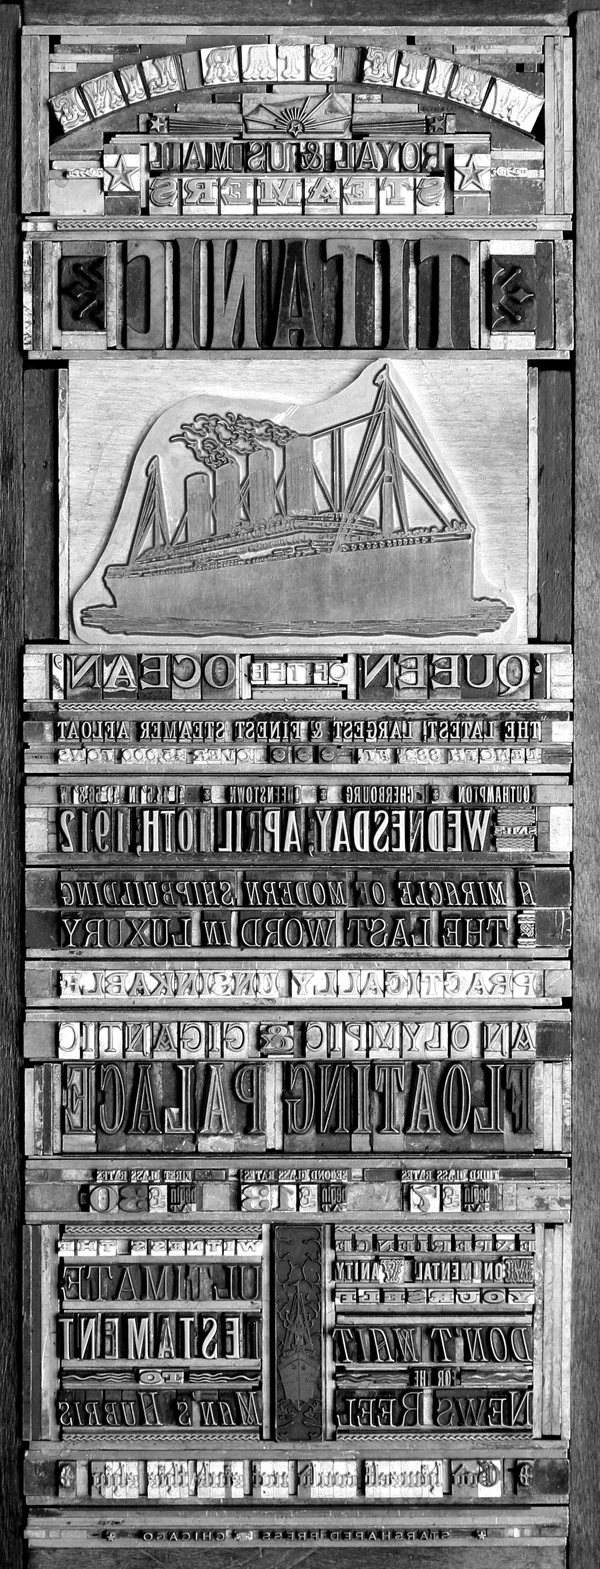 WHITE STAR LINE
ROYAL & U.S. MAIL
STEAMERS
TITANIC
"QUEEN OF THE OCEAN"
THE LATEST, LARGEST & FINEST STEAMER AFLOAT
LENGTH OVER TONS
OUTHAMPTON CHERBOURG
SAILS WEDNESDAY, APRIL 10TH, 1912
A MIRACLE OF MODERN SHIPBUILDING
THE LAST WORD IN LUXURY
PRACTICALLY UNSINKABLE
AN OLYMPIC & GIGANTIC
FLOATING PALACE
THIRD CLASS RATES
begin £7
SECOND CLASS RATES
begin £13
FIRST CLASS RATES
begin £30
EXPERIENCE
MONUMENTAL VANITY
YOURSELF
DON'T WAIT
FOR THE
NEWS REEL
WITNESS THE
ULTIMATE
TESTAMENT
TO
MAN'S HUBRIS
God himself could not sink this ship
STARSHAPED PRESS CHICAGO